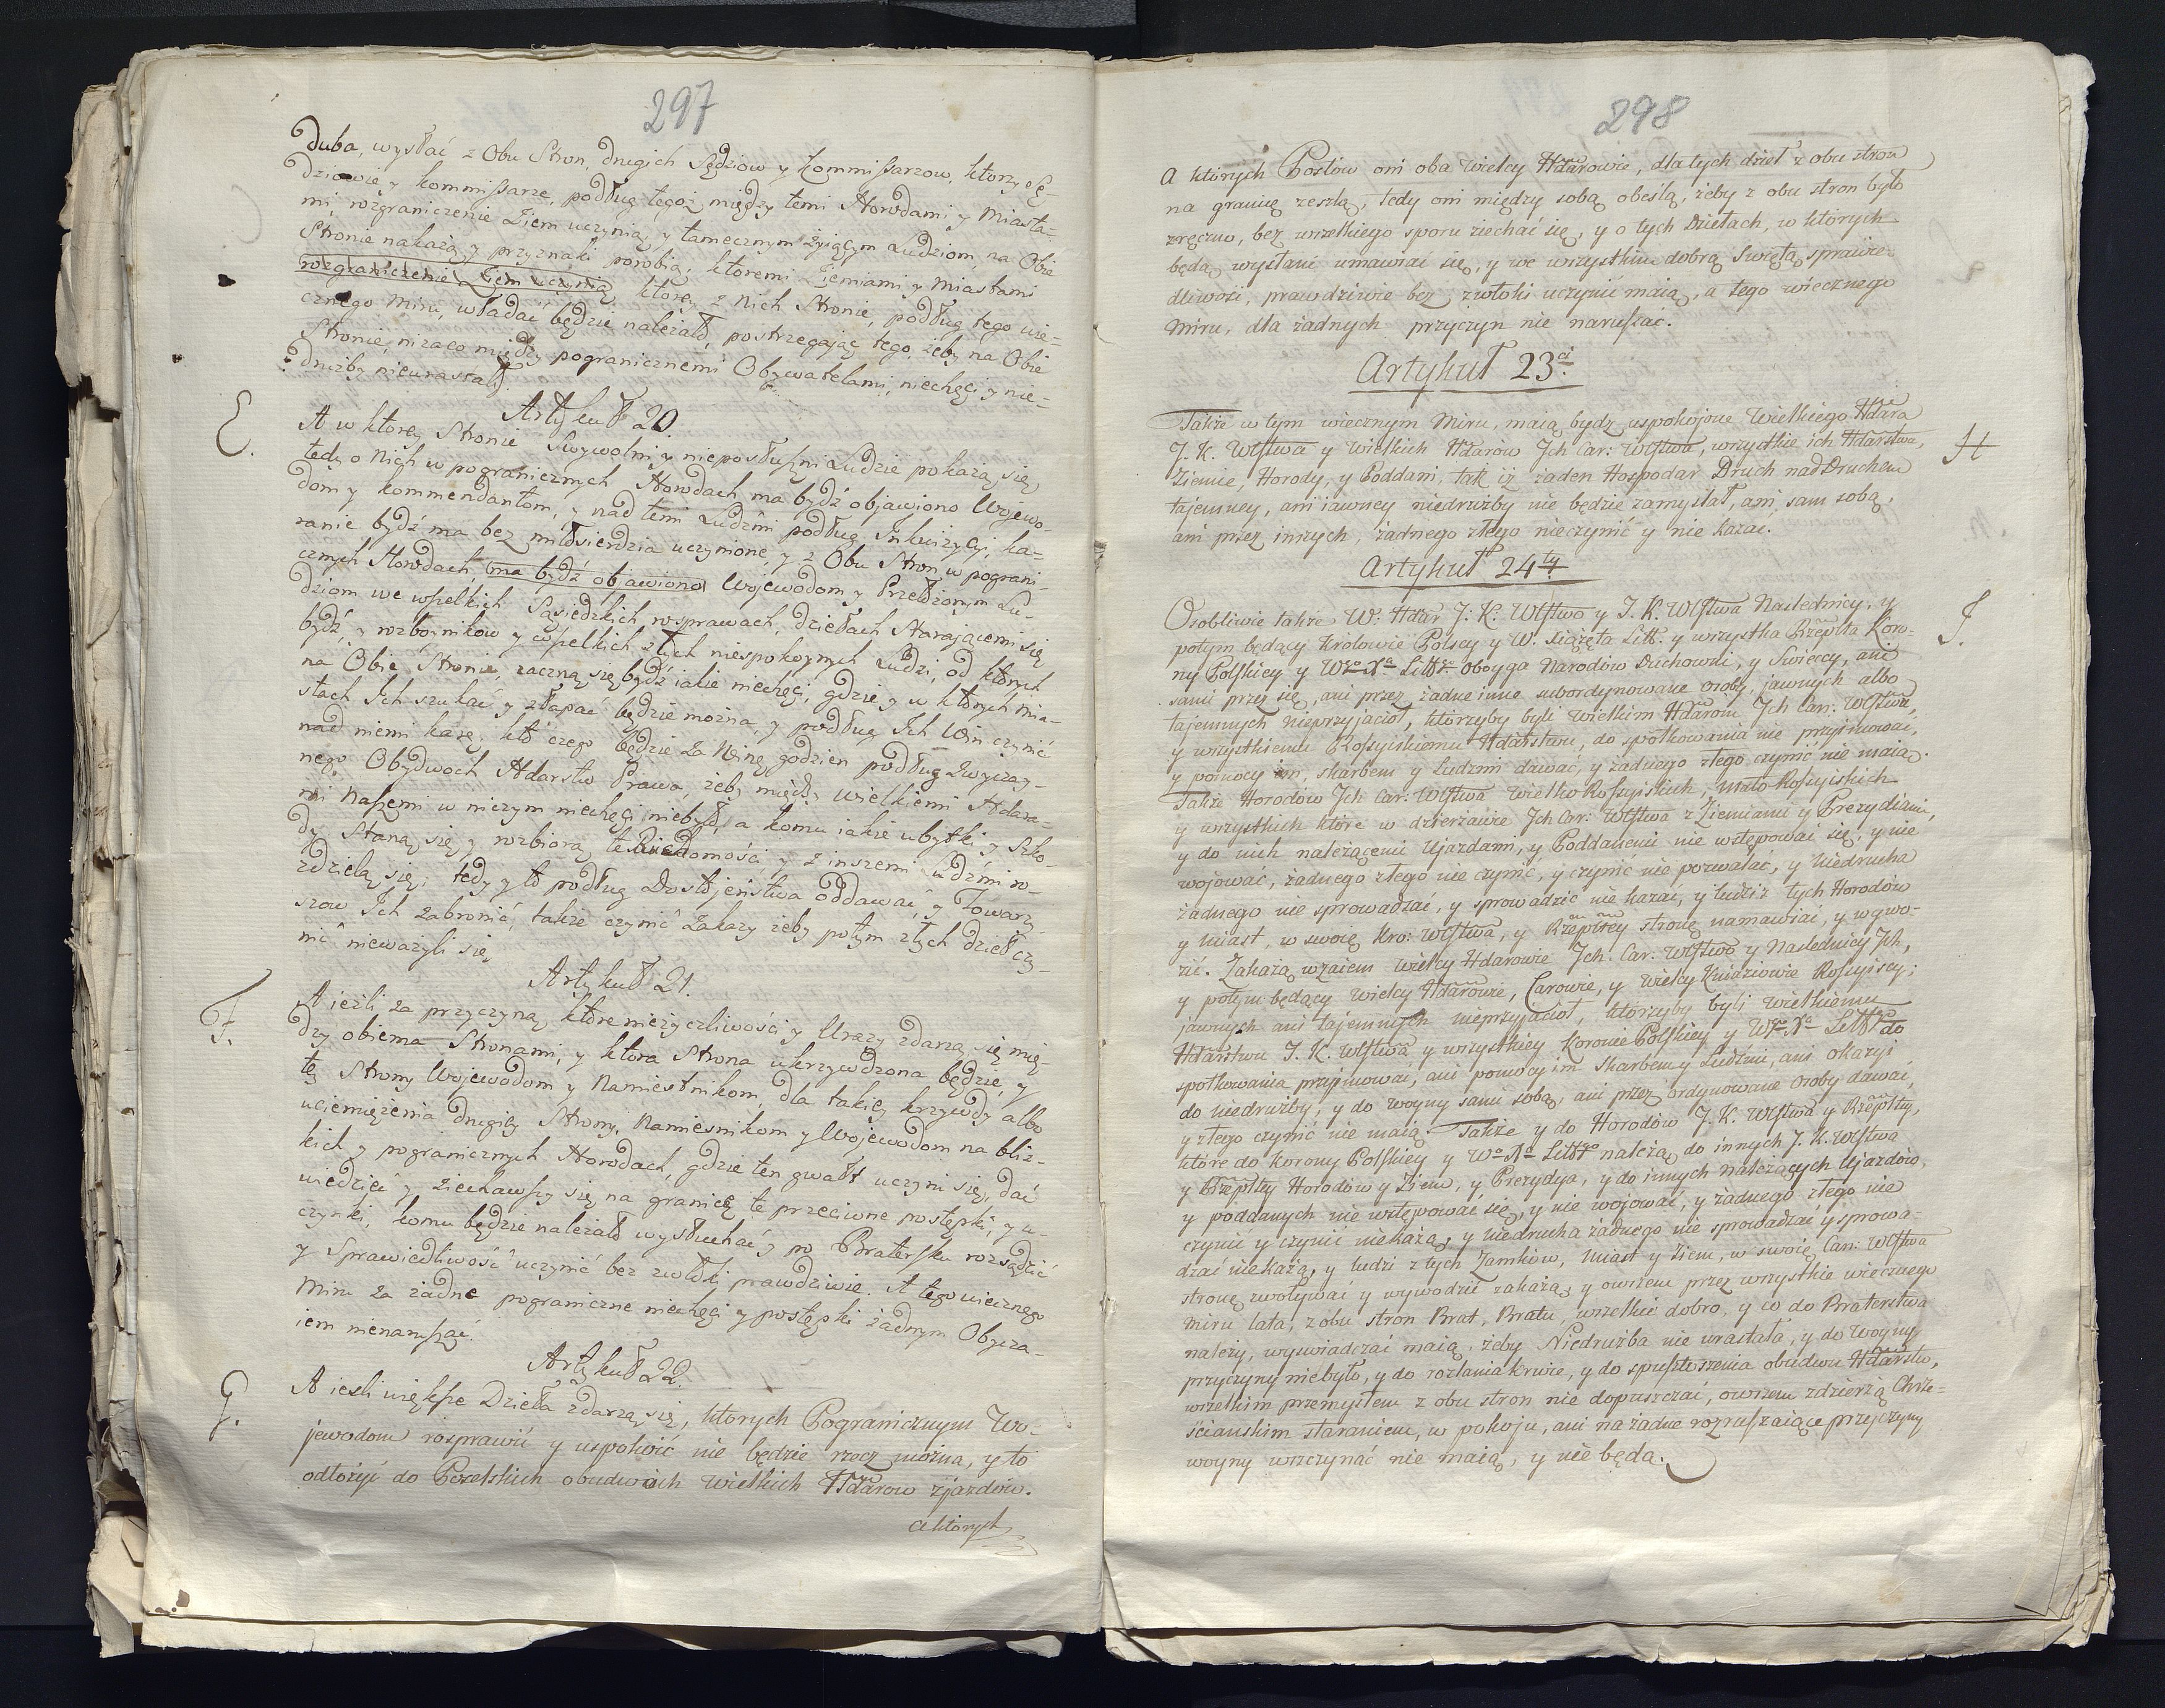 297
duba, wysłać z Obu Stron, drugich Sędziow y kommissarzow, ktorzy Sę-
dziowie y kommissarze, podług tegoż, między temi Horodami y Miasta-
mi, rozgraniczenie Ziem uczynią, y tamecznym żyiącym Ludziom, na Obie
Stronie nakażą, y przyznaki porobią, ktoremi Ziemiami y Miastami
rozgraniczenie Ziem uczynią, ktorey z Nich Stronie, podług tego wie-
cznego Miru, władać będzie należało, postrzegając tego, żeby na Obie
Stronie, nizaco między pogranicznemi Obywatelami, niechęci y nie-
drużby niewrastało
Artykuł 20
E.
A w ktorey Stronie Swywolni y nieposłuszni Ludzie pokażą się,
tedy o Nich w pogranicznych Horodach, ma bydź objawiono Wojewo-
dom y kommendantom, y nad temi Ludźmi podług Inkwizycyi, ka-
ranie bydź ma bez miłosierdzia uczynione, y z Obu Stron w pograni-
cznych Horodach, ma bydź objawiono Wojewodom y Przełożonym Lu-
dziom we wszelkich Sąsiedzkich rosprawach, dziełach Starającemi się
bydź, y rozboynikow y wszelkich złych niespokoynych Ludzi, od ktorych
na Obie Stronie, zaczną się bydź iakie niechęci, gdzie y w ktorych mia-
stach Ich szukać y złapać będzie można, y podług Ich Win czynić
nad niemi karę, kto czego będzie za Winę godzien podług Zwyczay-
nego Obydwoch Hdarstw Prawa, żeby między wielkiemi Hdara-
mi Naszemi w niczym niechęci niebyło, a komu iakie ubytki y Szko-
dy Staną się, y rozbiorą te Ruchomości, y z inszemi Ludźmi ro-
zdzielą się, tedy y to podług Dostojeństwa oddawać, y Towarzy-
szow Ich zabronić, takie czynić zakazy żeby potym złych dzieł czy-
nić nieważyli się
Artykuł 21.
F.
A ieżli za przyczyną ktore nieżyczliwości y Urazy zdarzą się mię-
dzy obiema Stronami, y ktora Strona ukrzywdzona będzie, y
tey Strony Wojewodom y Namiestnikom, dla takiey krzywdy albo
uciemiężenia drugiey Strony, Namiesnikom y Wojewodom na bliz-
kich y pogranicznych Horodach, gdzie ten gwałt uczyni się, dać
wiedzieć y ziechawszy się na granicę te przeciwne postępki, y u-
czynki, komu będzie należało wysłuchać y po Bratersku rozsądzić
y Sprawiedliwość uczynić bez zwłoki prawdziwie. A tego wiecznego
Miru za żadne pograniczne niechęci y postępki żadnym Obycza-
iem nienaruszać.
Artykuł 22.
G.
A iesli większe Dzieła zdarzą się, ktorych Pogranicznym Wo-
jewodom rosprawić y uspokoić nie będzie rzecz można, y to
odłożyć do Poselskich obudwoch wielkich Hdarow zjazdow.
a ktorych
298
A których Posłów oni oba wielcy Hdarowie, dla tych dzieł z obu stron
na granicę zeszlą, tedy oni między sobą obeślą, żeby z obu stron było
zręczno, bez wszelkiego sporu ziechać się, y o tych Dziełach, w których
będą wysłani umawiać się, y we wszystkim dobrą Swiętą sprawie-
dliwość, prawdziwie bez zwłoki uczynić maią, a tego wiecznego
Miru, dla żadnych przyczyn nie naruszać.
Artykuł 23ci.
Także w tym wiecznym Miru, maią bydz uspokojone Wielkiego Hdara
J. K. Wlstwa y Wielkich Hdarow Jch Car: Wlstwa, wszystkie ich Hdarstwa,
H
Ziemie, Horody, y Poddani, tak iż żaden Hospodar Druch nad Druchem
tajemney, ani iawney niedrużby nie będzie zamyślał, ani sam sobą,
ani przez inszych, żadnego złego nieczynić y nie kazać.
Artykuł 24ty.
Osobliwie także W: Hdar J: K: Wlstwo y J. K. Wlstwa Nasłednicy, y
J.
potym będący Krolowie Polscy y W. Xiążęta Litt: y wszystka Rzeplta Koro-
ny Polskiey y Wgo Xa Littgo oboyga Narodów Duchowni, y Swieccy, ani
sami przez się, ani przez żadne inne subordynowane osoby, jawnych albo
tajemnych nieprzyjacioł, ktorzyby byli Wielkim Hdarom Jch Car: Wlstwa,
y wszystkiemu Rossyiskiemu Hdarstwu, do spotkowania nie przyimować,
y pomocy im, skarbem y Ludzmi dawać, y żadnego złego czynić nie maią.
Także Horodów Jch Car: Wlstwa Wielko Rossyiskich, mało Rossyiskich
y wszystkich ktore w dzierżawie Jch Car: Wlstwa z Ziemiami y Prezydiami,
y do nich należącemi Ujazdami, y Poddanemi nie wstępować się, y nie
wojować, żadnego złego nie czynić, y czynić nie pozwalać, y Niedrucha
żadnego nie sprowadzać, y sprowadzić nie kazać, y ludzi z tych Horodow
y Miast, w swoię Kro: Wlstwa, y Rzeplitey stronę namawiać, y wywo-
zić. Zakażą wzaiem Wielcy Hdarowie Jch. Car. Wlstwo y Nasłednicy Jch,
y potym będący Wielcy Hdarowie, Carowie, y Wielcy Kniaziowie Rossyiscy,
jawnych ani tajemnych nieprzyjacioł, ktorzyby byli Wielkiemu
Hdarstwu J. K. Wlstwa y wszystkiey Koronie Polskiey y Wgo Xa Littgo do
spotkowania przyjmować, ani pomocy im Skarbem y Ludźmi, ani okazyi
do niedrużby, y do woyny sami sobą, ani przez ordynowane osoby dawać,
y złego czynić nie maią. Także y do Horodów J. K. Wlstwa y Rzepltey,
które do Korony Polskiey y Wgo Xa Littgo należą, do innych J. K. Wlstwa
y Rzepltey Horodów y Ziem, y Prezydya, y do innych należących Ujazdów,
y poddanych nie wstępować się, y nie wojować, y żadnego złego nie
czynić y czynić nie każą, y niedrucha żadnego nie sprowadzać y sprowa-
dzać nie każą, y ludzi z tych Zamków, Miast y Ziem, w swoię Car: Wlstwa
stronę zwoływać y wywodzić zakażą, y owszem przez wszystkie wiecznego
Miru lata, z obu stron Brat, Bratu, wszelkie dobro, y co do Braterstwa
należy, wyświadczać maią, żeby Niedrużba nie wrastała, y do Woyny
przyczyny niebyło, y do rozlania krwie, y do spustoszenia obudwu Hdarstw,
wszelkim przemysłem z obu stron nie dopuszczać, owszem zdzierżą Chrze-
ściańskim staraniem, w pokoju, ani na żadne rozruszaiące przyczyny
woyny wszczynać nie maią, y nie będa.